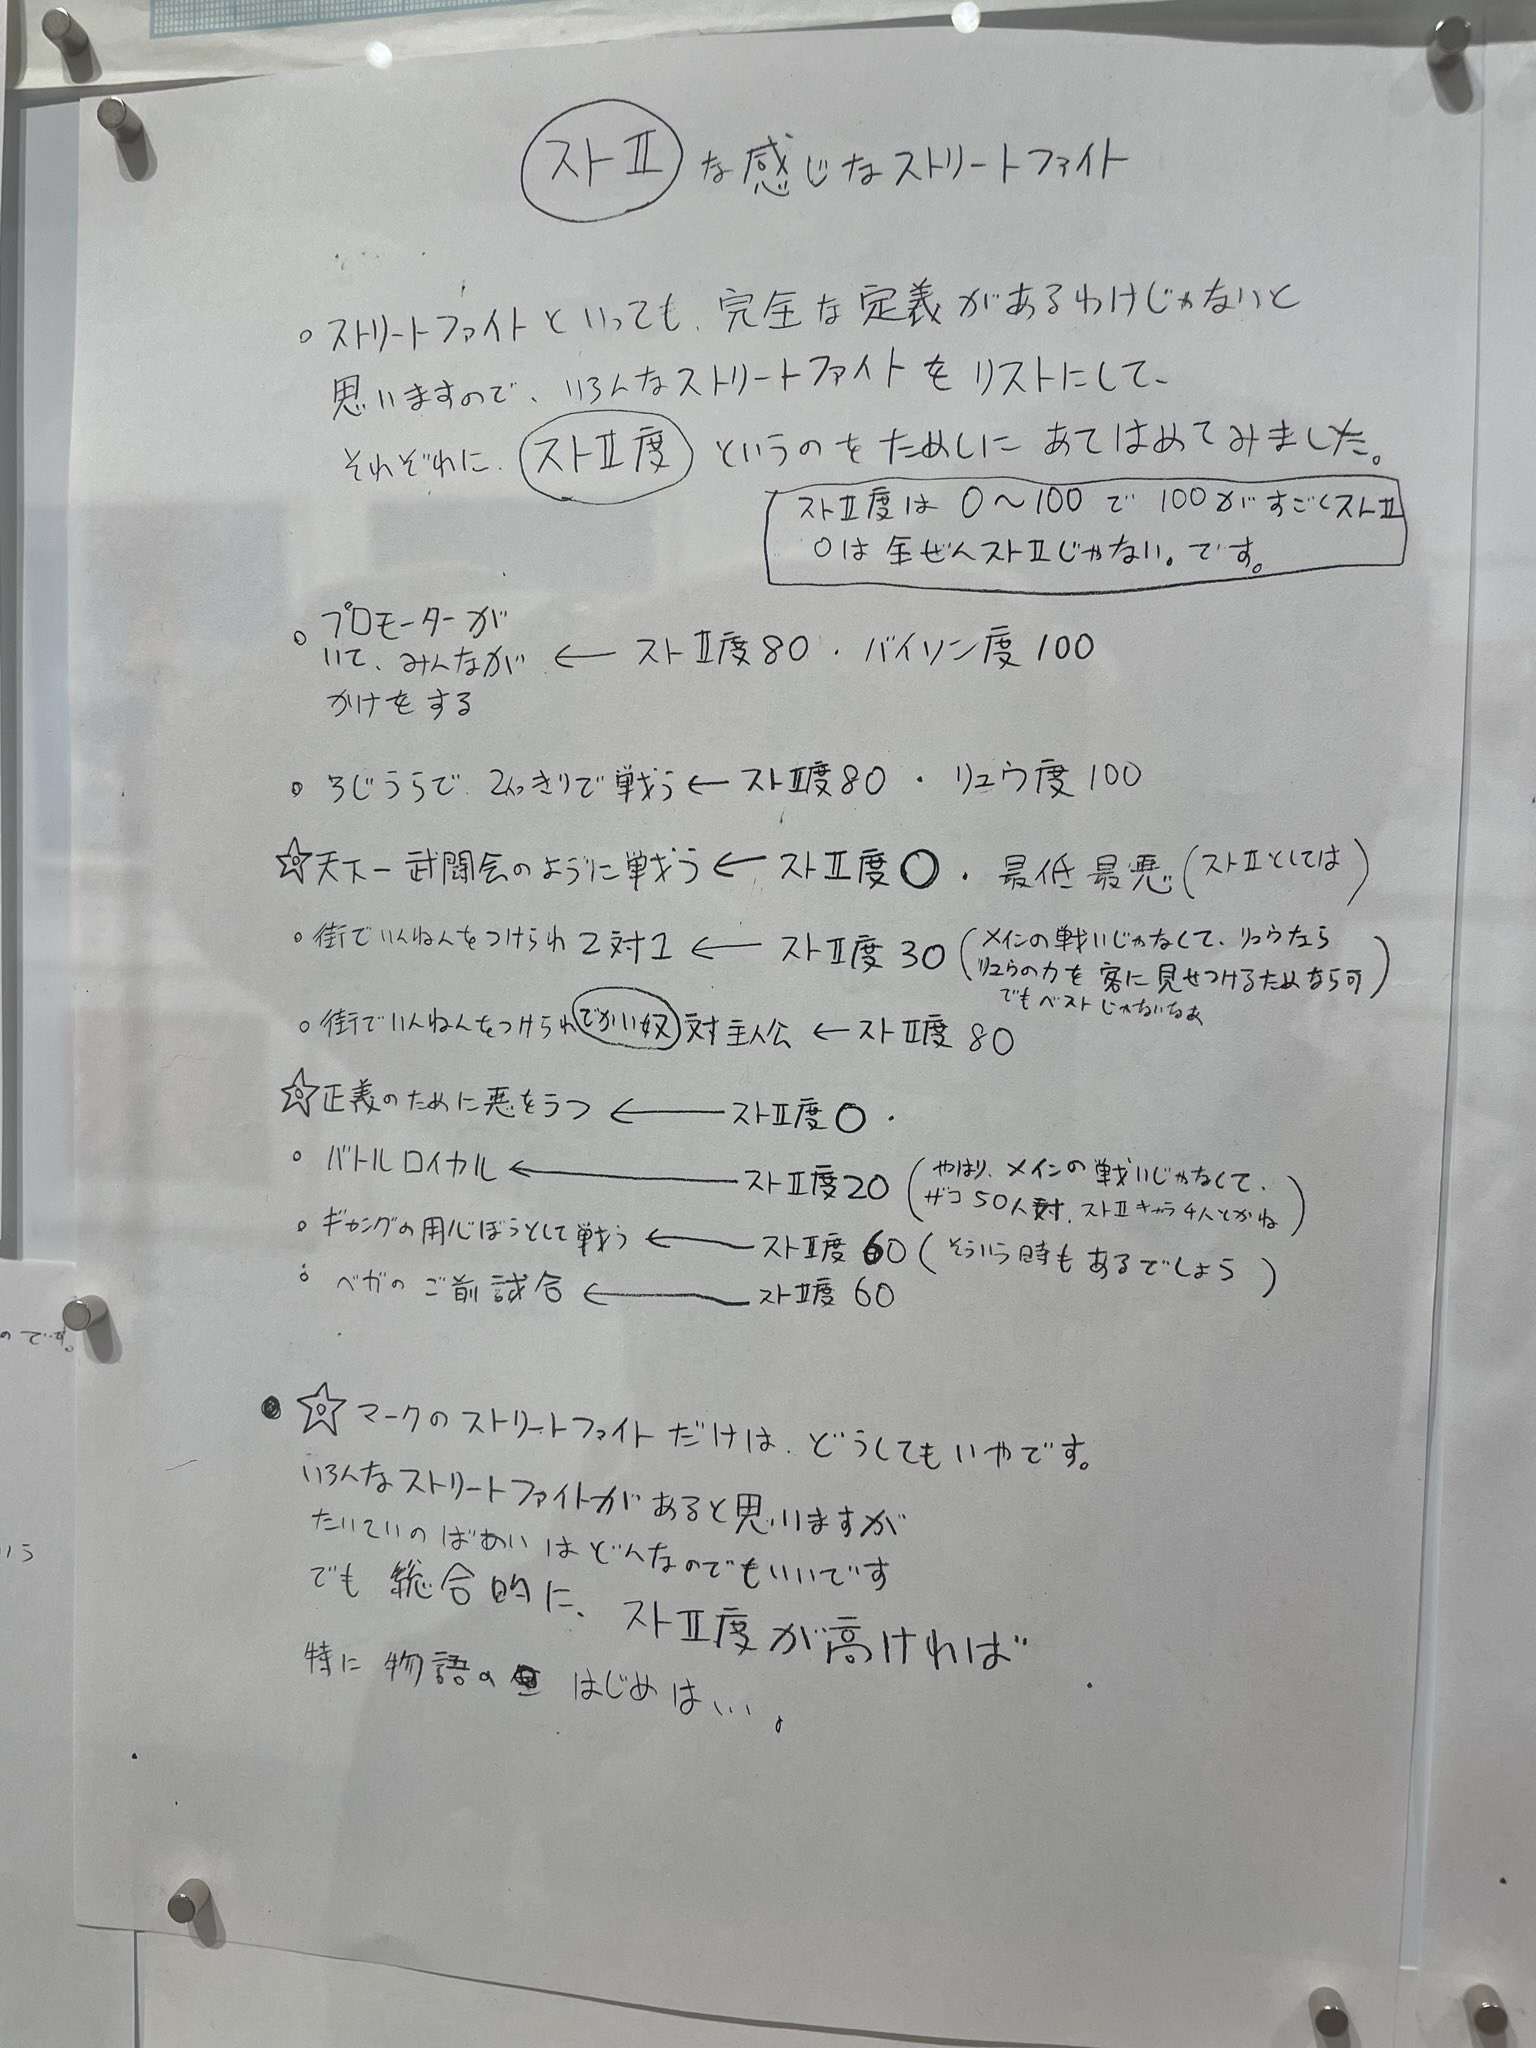 ストⅡな感じなストリートファイト
○ストリートファイトといっても、完全な定義があるわけじゃないと
思いますので、いろんなストリートファイトをリストにして、
それぞれに、ストⅡ度というのをためしにあてはめてみました。
ストⅡ度は0〜100で100がすごくストⅡ
0は全ぜんストⅡじゃない。です。
○プロモーターが
いて、みんなが
かけをする
←ストⅡ度80・バイソン度100
○ろじうらで、2人っきりで戦う←ストⅡ度80・リュウ度100
☆天下一武闘会のように戦う←ストⅡ度0・最低最悪(ストⅡとしては)
○街でいんねんをつけられ2対1←ストⅡ度30(メインの戦いじゃなくて、リュウなら
リュウの力を客に見せつけるためなら可
でもベストじゃないなぁ)
○街でいんねんをつけられでかい奴対主人公←ストⅡ度80
☆正義のために悪をうつ←ストⅡ度0・
○バトルロイヤル←ストⅡ度20(やはり、メインの戦いじゃなくて、
ザコ50人対、ストⅡキャラ4人とかね)
○ギャングの用心ぼうとして戦う←ストⅡ度60(そういう時もあるでしょう)
○ベガのご前試合←ストⅡ度60
●☆マークのストリートファイトだけは、どうしてもいやです。
いろんなストリートファイトがあると思いますが
たいていのばあいはどんなのでもいいです
でも総合的に、ストⅡ度が高ければ
特に物語のはじめは…。
のです。
いう